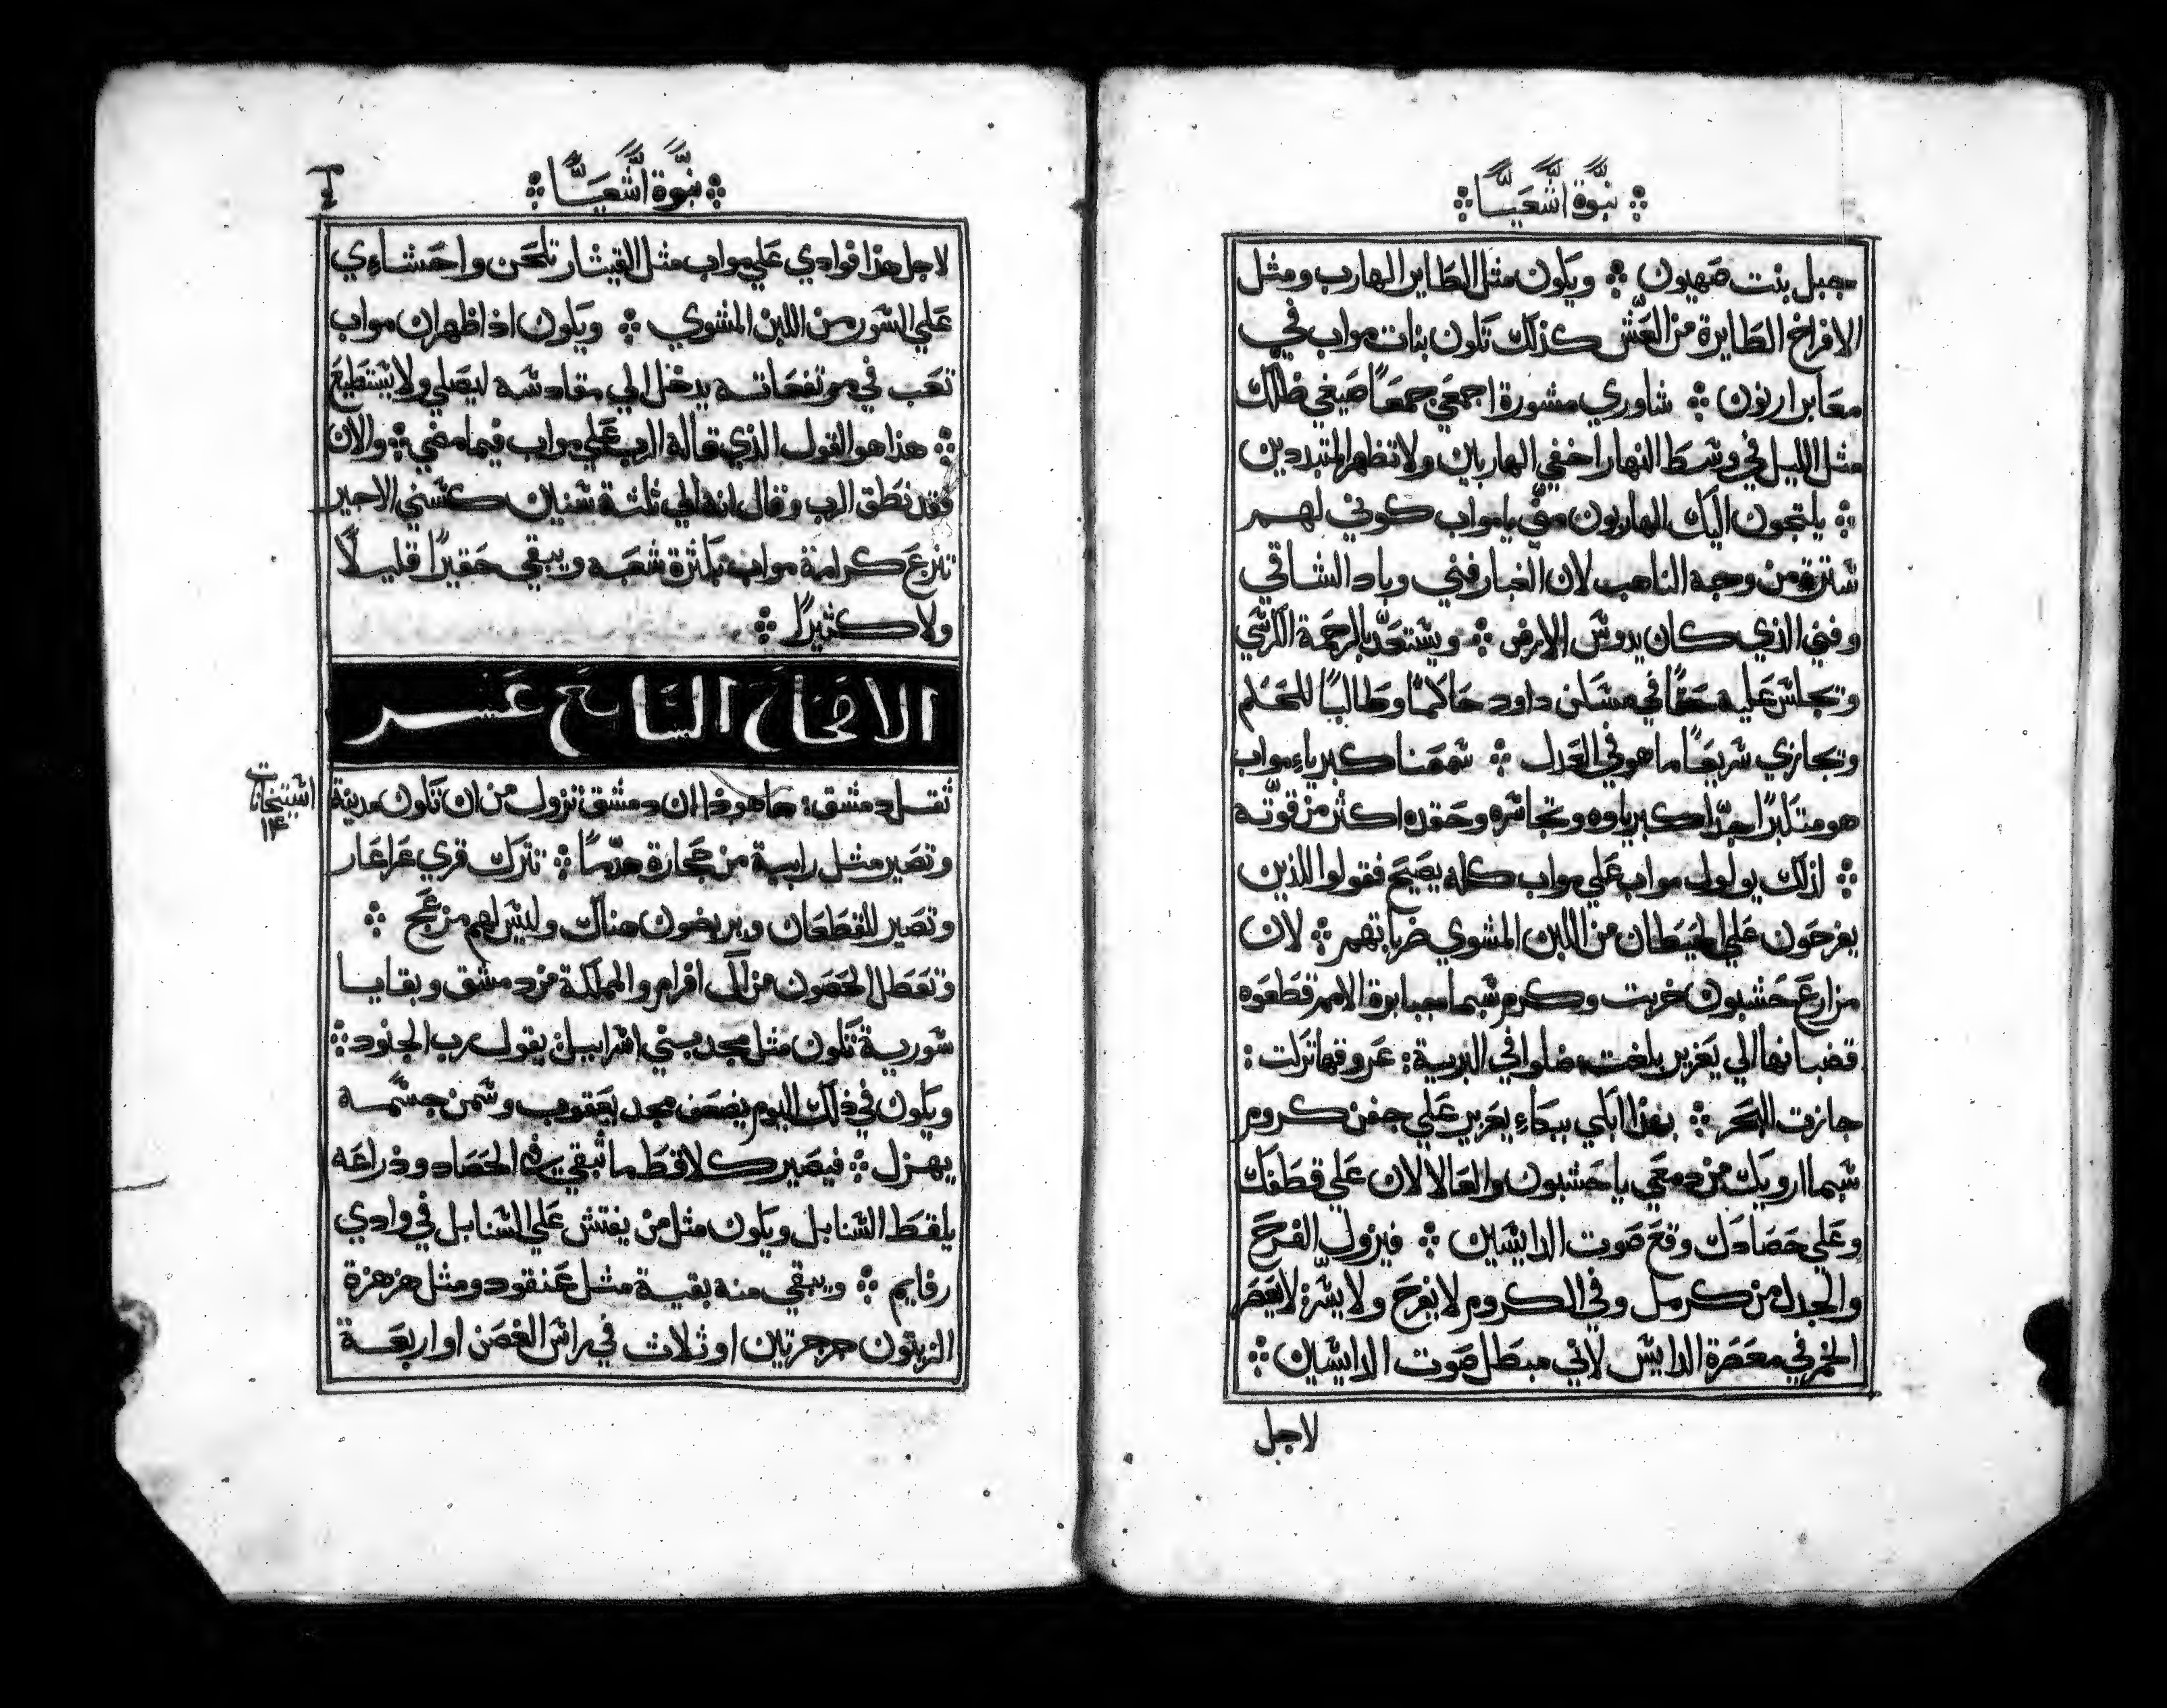 نبوة اشعيا
جبل بنت صهيون ويكون مثل الطاير الهارب ومثل
الافراخ الطايرة من العش كذلك تكون بنات مواب في
معابر ارنون شاوري مشورة اجمعي جمعًا ضيغي ظلك
مثل الليل في وسط النهار اخفي الهاربين ولا تظهر المتبددين
يلتجون اليك الهاربون مني يا مواب كوني لهم
سترة من وجه الناهب لان الغبار فني وباد الشاقي
وفني الذي كان يدوس الارض ويستعد بالرحمة الكرسي
وتجلس عليه حقًا في مسكن داود حاكمًا وطالبًا للحكم
وتجازي سريعًا ما هو في العدل سمعنا كبرياء مواب
هو متكبرًا جدًا كبرياوه وتجاسره وحقده اكثر من قوته
لذلك يولول مواب علي مواب كله يصيح فقولوا للذين
يفرحون علي الحيطان من اللبن المشوي ضرباتهم لان
مزارع حشبون خربت وكرم سبما جبابرة الامم قطعوه
قضبانها الي يعزير بلغت ضلوا في البرية: عروقها تركت:
جازت البحر بهذا ابكي ببكاء يعزير علي جفن كروم
سبما ارويك من دمعي يا حشبون والعالا لان علي قطفك
وعلي حصادك وقع صوت الدايسين فيزول الفرح
والجدل من كرمل وفي الكروم لا يفرح ولا يسر لا يعصر
الخمر في معصرة الدايس لاني مبطل صوت الدايسين
لاجل
نبوة اشعيا
لاجل هذا فوادي علي مواب مثل القيثار تلحن واحشاءي
علي السور من اللبن المشوي ويكون اذا ظهر ان مواب
تعب في مرتفعاته يدخل الي مقادسه ليصلي ولا يستطيع
هذا هو القول الذي قاله الرب علي مواب فيما مضي والان
فقد نطق الرب وقال انه الي ثلثة سنين كسني الاجير
تنزع كرامة مواب بكثرة شعبه ويبقي حقيرًا قليلًا
ولا كثيرًا
الاصحاح السابع عشر
ثقل دمشق: ها هوذا ان دمشق تزول من ان تكون مدينة
وتصير مثل رابية من حجارة هدمًا تترك قري عراعار
وتصير للقطعان ويربضون هناك وليس لهم مزعج
وتعطل الحصون من ال افرام والمملكة من دمشق وبقايا
سورية تكون مثل مجد بني اسراييل يقول رب الجنود
ويكون في ذلك اليوم يضعف مجد يعقوب وسمن جسمه
يهزل فيصير كلاقط ما تبقي في الحصاد وذراعه
يلقط السنابل ويكون مثل من يفتش علي السنابل في وادي
رفايم ويبقي منه بقية مثل عنقود ومثل هزهزة
الزيتون حبتين او ثلاث في راس الغصن او اربعة